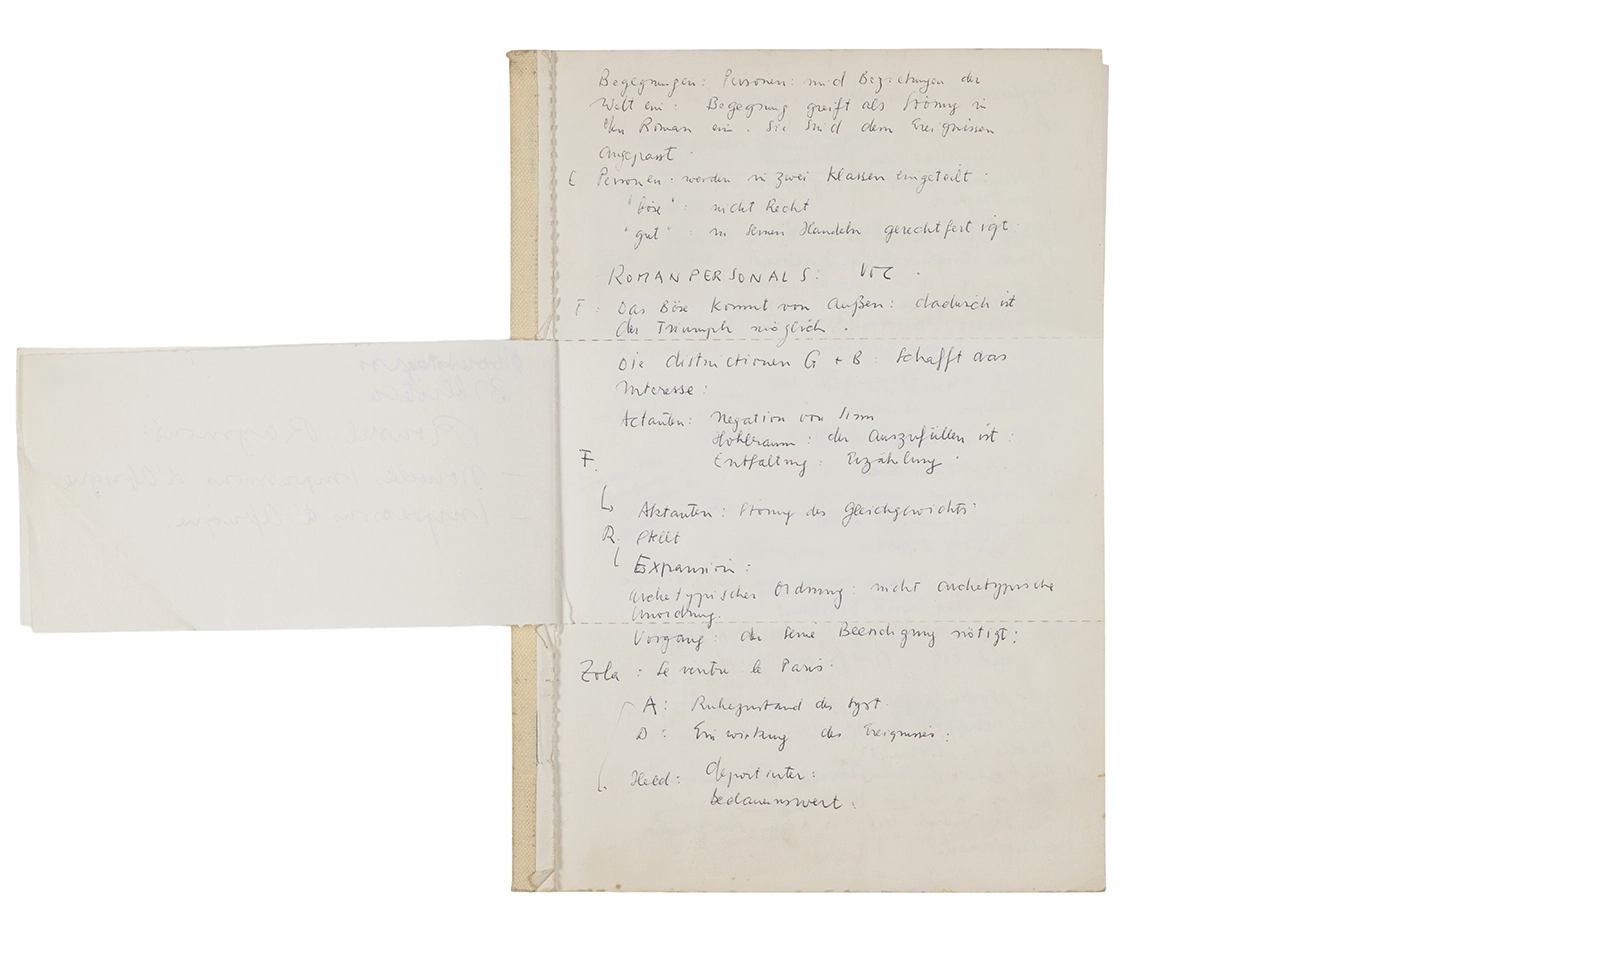 Begegnungen: Personen: sind Beziehungen der
Welt ein: Begegnung greift als Störung in
den Roman ein. Sie sind dem Ereignissen
angepasst.
Personen: werden in zwei Klassen eingeteilt:
"böse": nicht Recht
"gut": in seinen Handeln gerechtfertigt
ROMANPERSONALS:
F: Das Böse kommt von Außen: dadurch ist
der Triumph möglich.
Die distinctionen G + B: Schafft das
Interesse:
Actanten: Negation von Sinn
Hohlraum: der Auszufüllen ist:
F. Entfaltung: Erzählung.
Aktanten: Störung des Gleichgewichts
R. stellt
Expansion:
archetypischer Ordnung: nicht archetypische
Unordnung.
Vorgang: der seine Beendigung nötigt:
Zola: Le ventre de Paris.
A: Ruhezustand des Syst.
D: Einwirkung des Ereignisses:
Held:
bedauernswert:
Roussel Raymond:
– Nouvelles Impressions d'Afrique
– Impressions d'Afrique